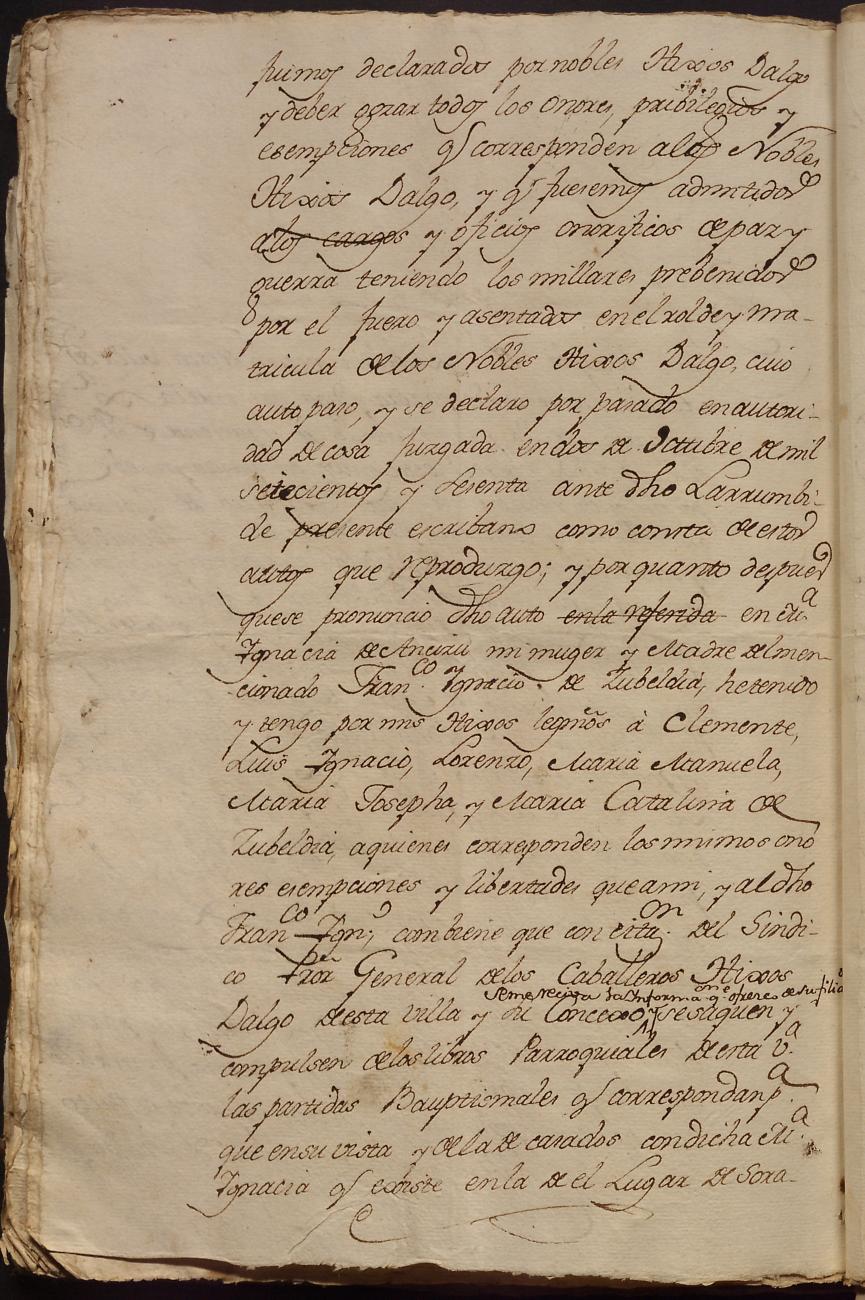 fuimos declarados por nobles Hixos Dalgo
y deber gozar todos los onores, pribilegios y
esempciones q̃ corresponden a los Nobles
Hixos Dalgo, y q̃ fuesemos admitidos
a los cargos y oficios onorificos de paz y
guerra teniendo los millares prebenidos
por el fuero y asentados en el rolde y ma-
tricula de los Nobles Hixos Dalgo, cuio
auto paso, y se declaro por pasado en autori-
dad de cosa juzgada en dos de Octubre de mil
setecientos y sesenta ante dho Larrumbi-
de presente escribano como consta de estos
autos que reproduzgo; y por quanto despues
que se pronuncio dho auto en la referida en Mª
Ygnacia de Ancizu mi muger y Madre del men-
cionado Franco. Ygnacio de Zubeldia, he tenido
y tengo por mis Hixos legmos à Clemente,
Luis Ygnacio, Lorenzo, Maria Manuela,
Maria Josepha, y Maria Catalina de
Zubeldia, aquienes corresponden los mismos ono
res esempciones y libertades que ami, y al dho
Franco Ygno; combiene que con citaon. del Sindi-
co Pror General de los Caballeros Hixos
se me reciva la Informaon. q.e ofrezco de su filiaon
Dalgo de esta villa y su Concexo, y se saquen y
compulsen de los libros Parroquiales de esta Vª.
las partidas Bauptismales q̃ correspondan pª.
que en su vista y de la de casados con dicha Mª.
Ygnacia q̃ existe en la de el Lugar de Sora-